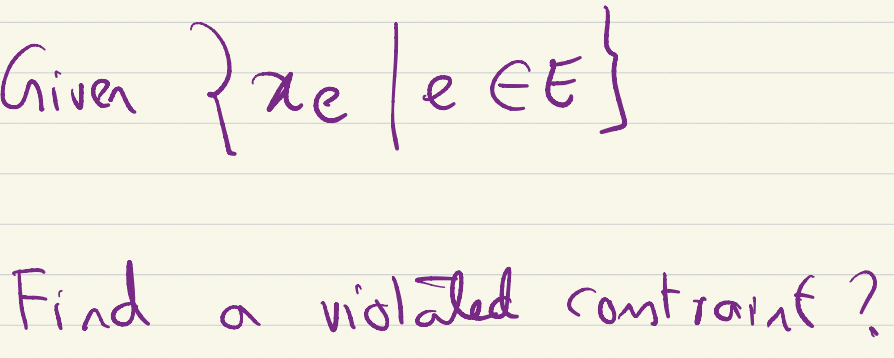 Given {x_e | e ∈ E}
Find a violated constraint?